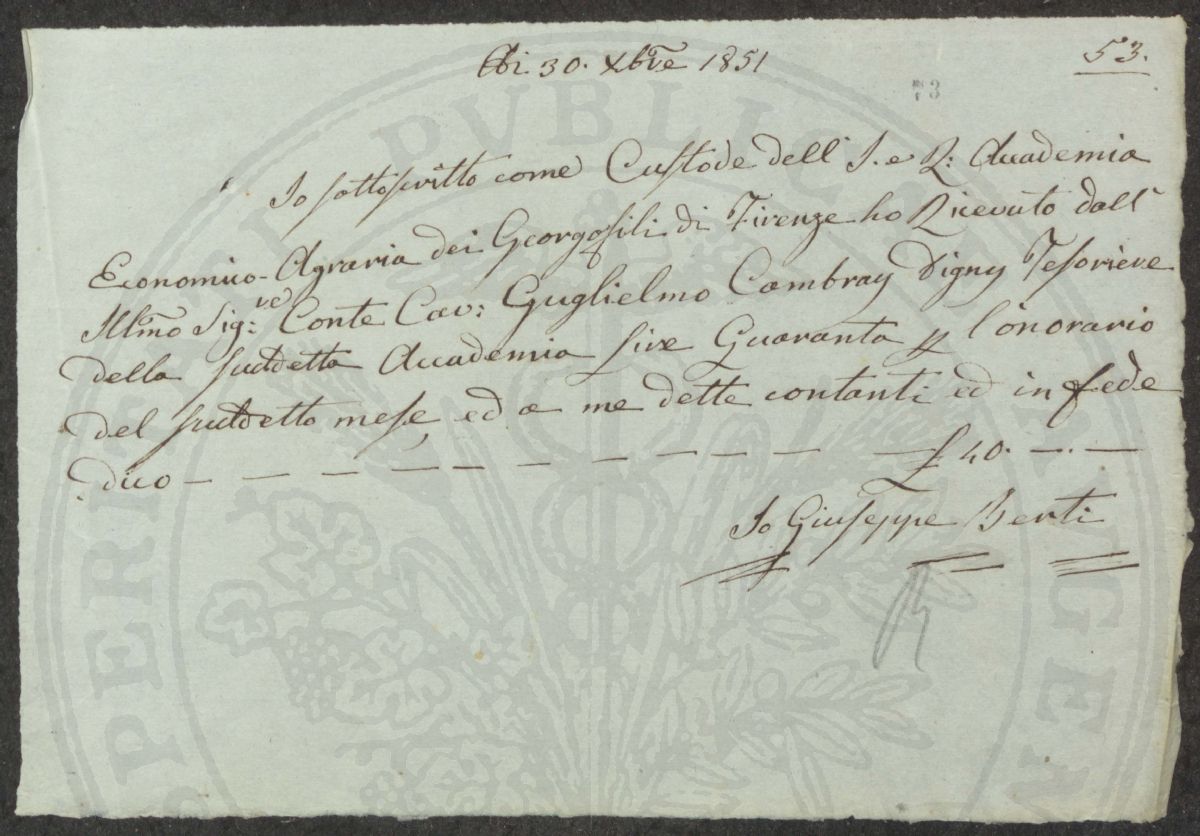 Adi 30. Xbre 1851
53.
73
Io sottoscritto come Custode dell' I. e R: Accademia
Economico-Agraria dei Georgofili di Firenze ho Ricevuto dall'
Illmo Sig:re Conte Cav: Guglielmo Cambray Digny Tesoriere
della suddetta Accademia Lire Quaranta p l'onorario
del suddetto mese, ed a me dette contanti ed in fede
dico — — — — — — — — — — — £ 40. — . —
Io Giuseppe Berti
PERITATI PUBLICAE AUGEN